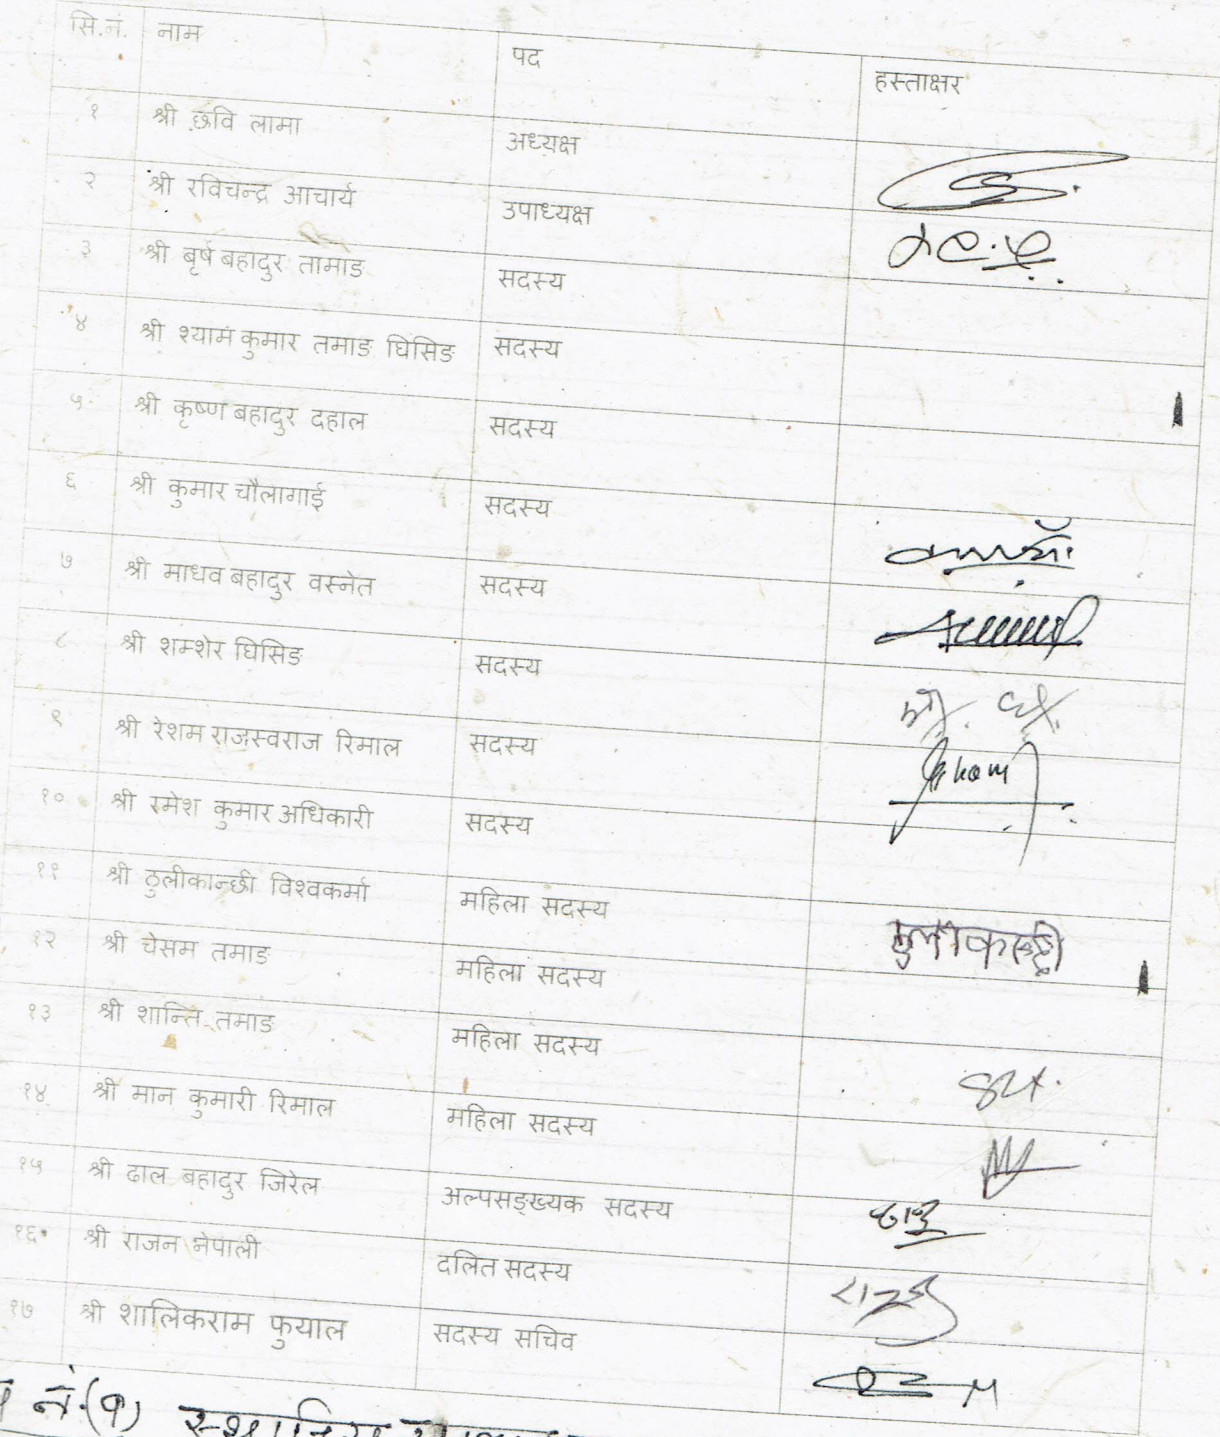 सि.नं. नाम पद हस्ताक्षर
१ श्री छवि लामा अध्यक्ष
२ श्री रविचन्द्र आचार्य उपाध्यक्ष
३ श्री बृर्ष बहादुर तामाङ सदस्य
४ श्री श्याम कुमार तमाङ घिसिङ सदस्य
५ श्री कृष्ण बहादुर दहाल सदस्य
६ श्री कुमार चौलागाई सदस्य
७ श्री माधव बहादुर वस्नेत सदस्य
८ श्री शम्शेर घिसिङ सदस्य
९ श्री रेशम राजस्वराज रिमाल सदस्य
१० श्री रमेश कुमार अधिकारी सदस्य
११ श्री ठुलीकान्छी विश्वकर्मा महिला सदस्य
१२ श्री चेसम तमाङ महिला सदस्य
१३ श्री शान्ति तमाङ महिला सदस्य
१४ श्री मान कुमारी रिमाल महिला सदस्य
१५ श्री ढाल बहादुर जिरेल अल्पसङ्ख्यक सदस्य
१६ श्री राजन नेपाली दलित सदस्य
१७ श्री शालिकराम फुयाल सदस्य सचिव
नं.(१)